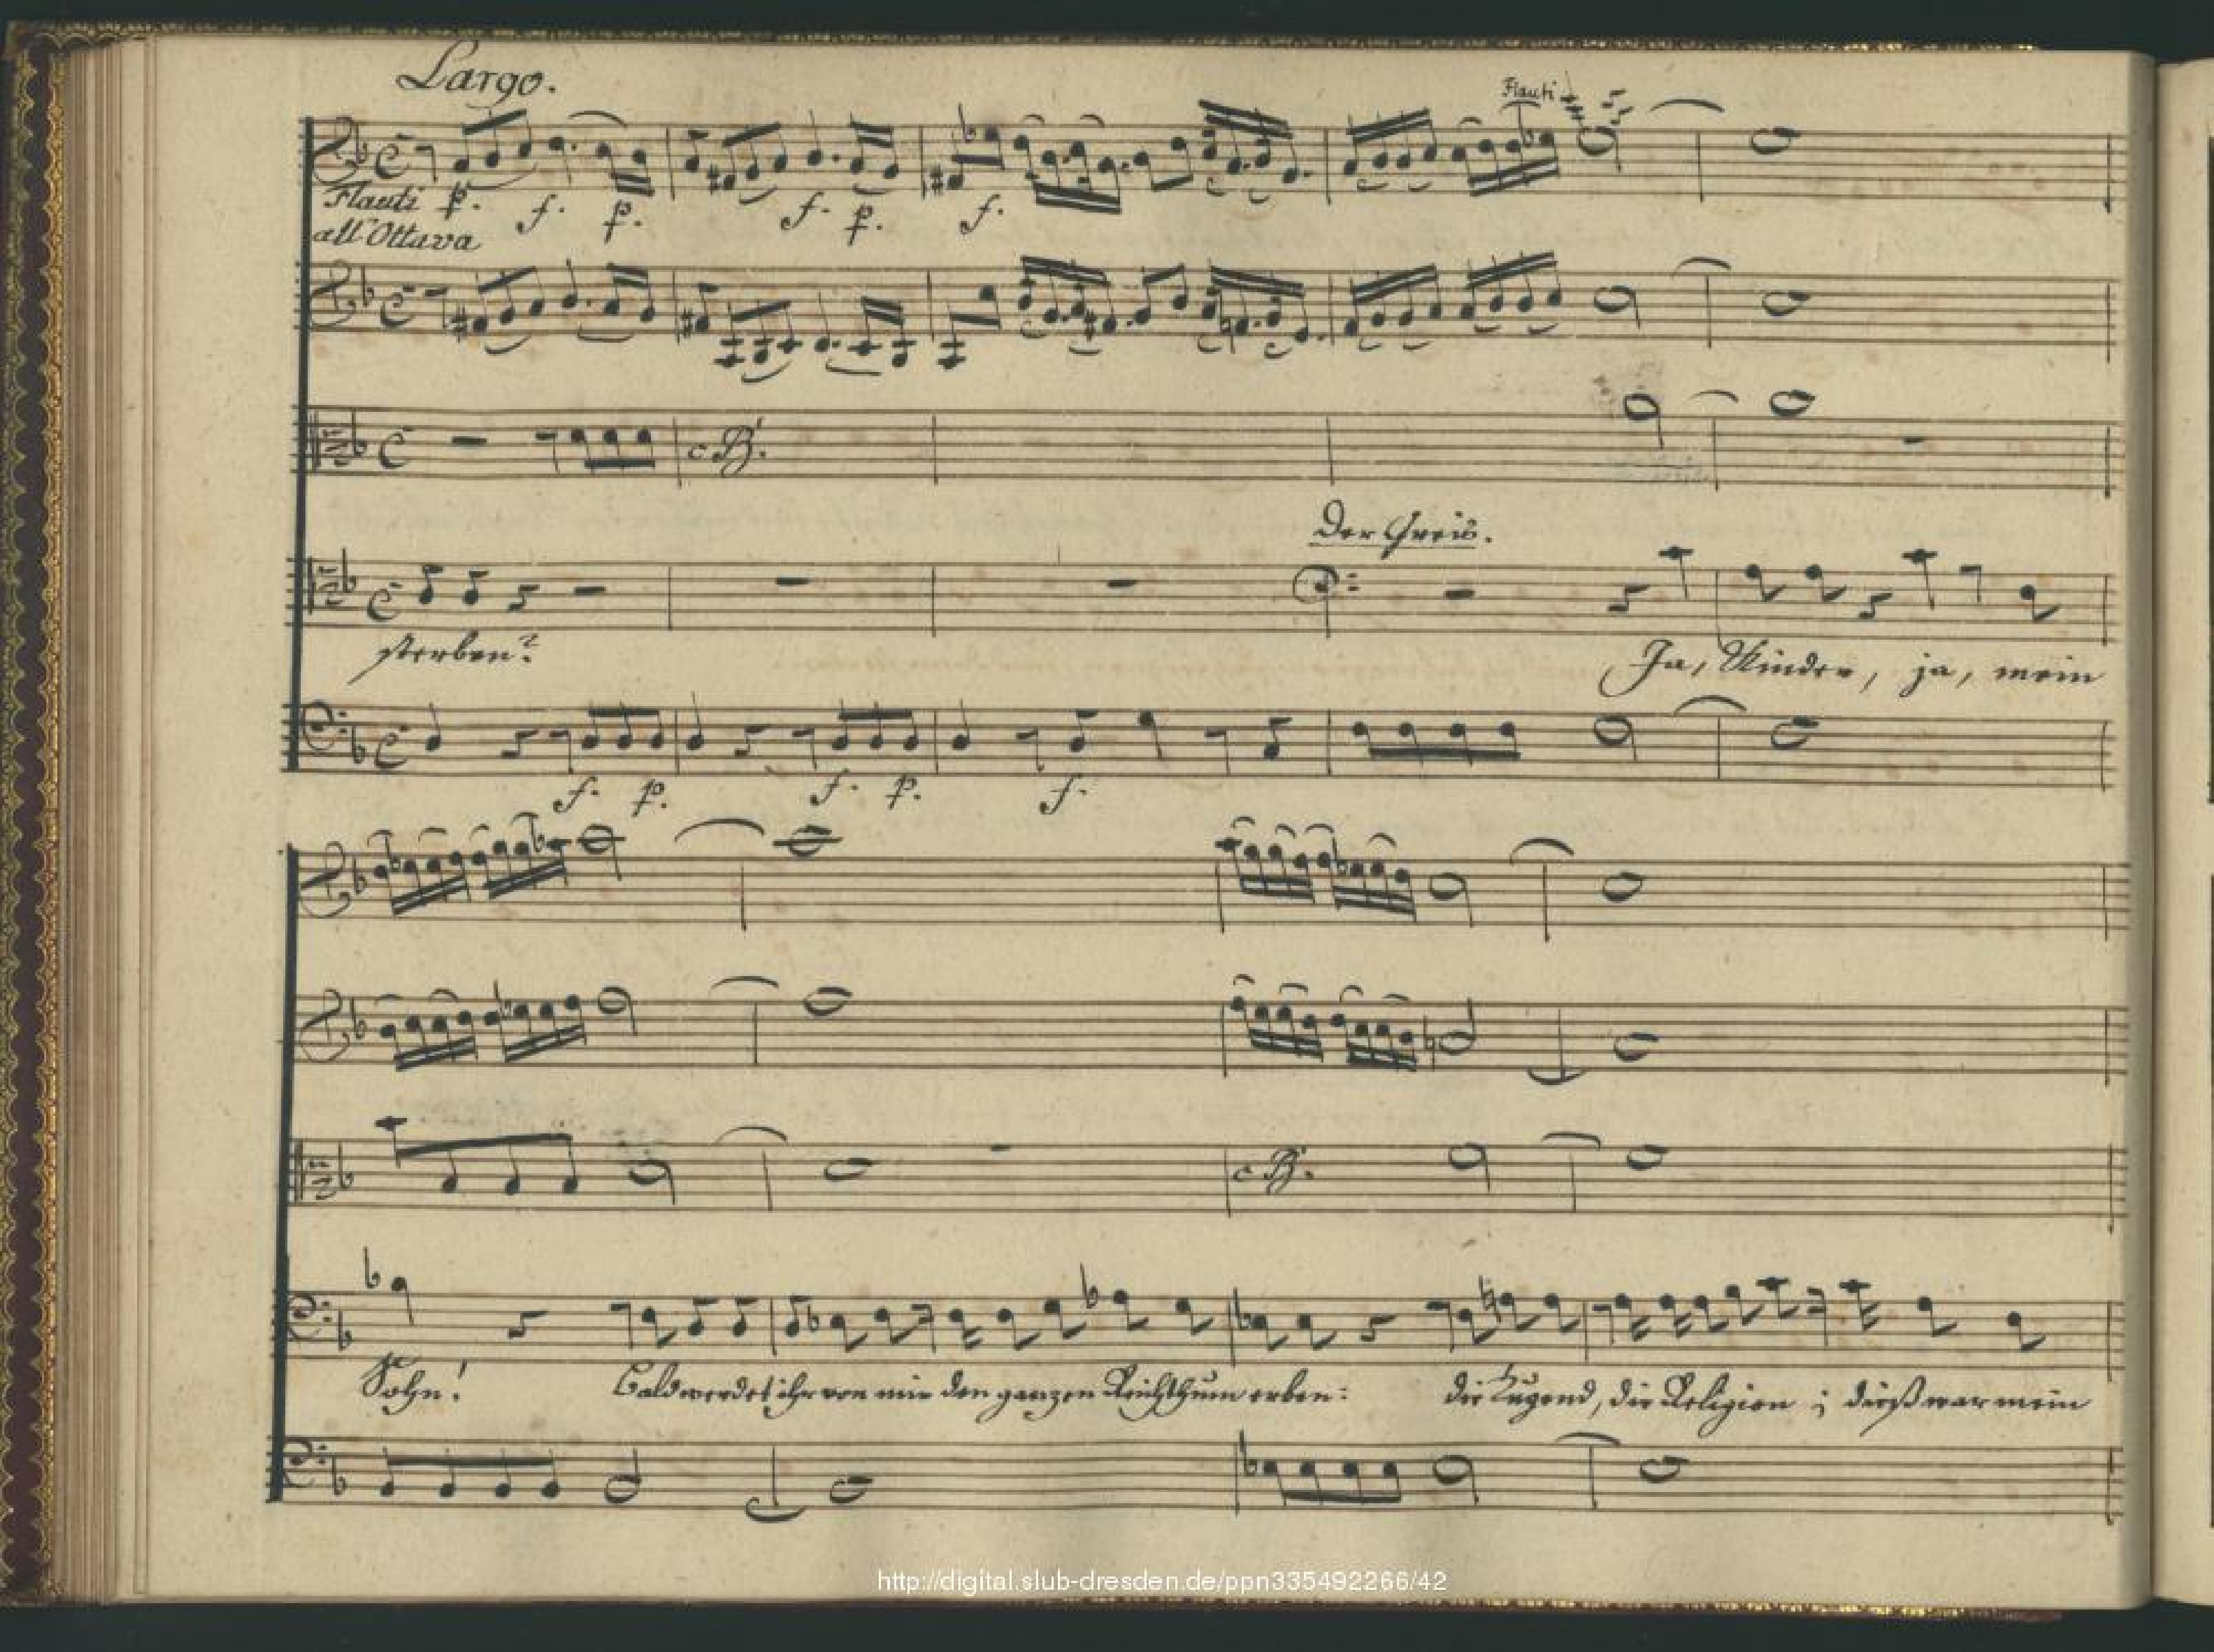 Largo.
Flauti
Flauti p. f. p. f. p. f.
all'Ottava
c B.
Der Greis.
sterben? Ja, Kinder, ja, mein
f. p. f. p. f.
c B.
Sohn! Bald werdet ihr von mir den ganzen Reichthum erben: die Tugend, die Religion; dieß war mein
http://digital.slub-dresden.de/ppn335492266/42